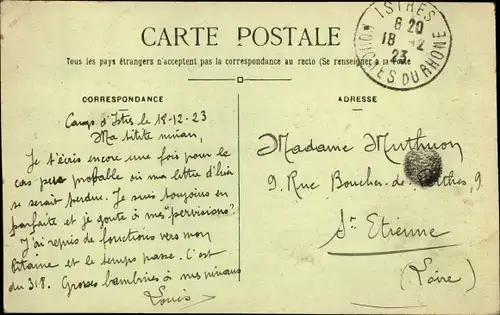 CARTE POSTALE
Tous les pays étrangers n'acceptent pas la correspondance au recto (Se renseigner à la Poste
ISTRES
8 20
18 12
23
BOUCHES DU RHONE
CORRESPONDANCE
Camp d'Istres le 18-12-23
Ma titite
Je t'écris encore une fois pour le
cas peu probable où ma lettre d'hier
se serait perdue. Je suis toujours en
parfaite et je goute à mes "permissions"
J'ai repris de fonctions vers mon
Pitaine et le temps passe. C'est
du 318. Grosses à mes
Louis
ADRESSE
Madame Muthuon
9, Rue Boucher-de-Perthes, 9
St Etienne
(Loire)